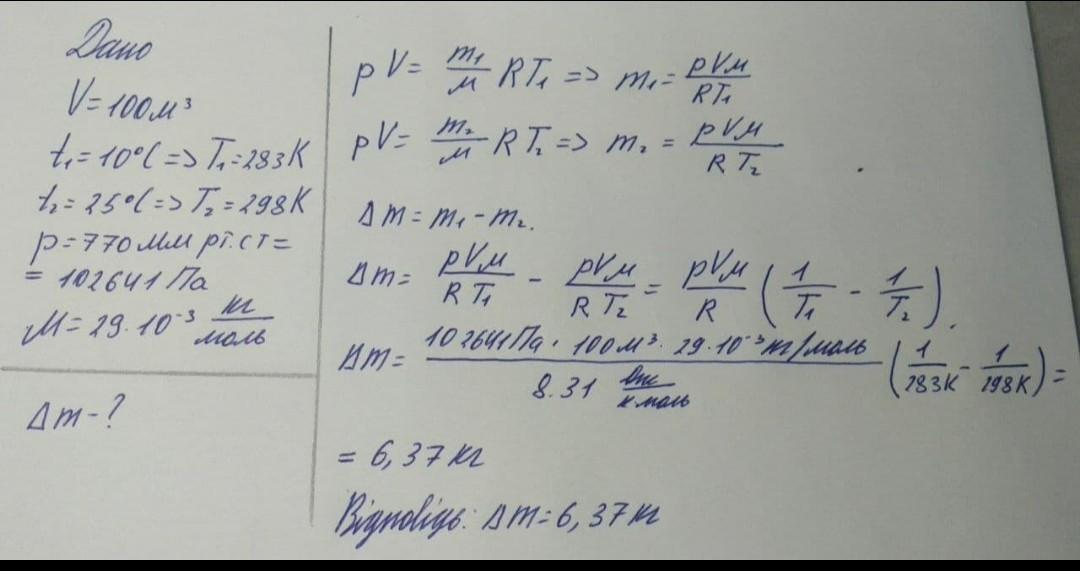 Дано
V=100м³
t₁=10°C=>T₁=283K
t₂=25°C=>T₂=298K
p=770мм рт.ст=
=102641Па
M=29·10⁻³ кг/моль
Δm-?
pV= m₁/M RT₁ => m₁= pVM/RT₁
pV= m₂/M RT₂ => m₂ = pVM/RT₂
Δm=m₁-m₂.
Δm= pVM/RT₁ - pVM/RT₂ = pVM/R (1/T₁ - 1/T₂).
Δm= 102641Па·100м³·29·10⁻³кг/моль / 8.31 Дж/К моль (1/283K - 1/298K)=
= 6,37кг
Відповідь: Δm=6,37кг